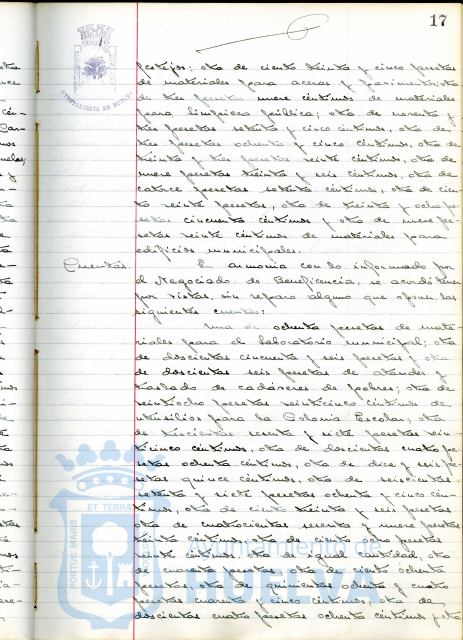 17
AYUNTAMIENTO DE HUELVA
festejos; otra de ciento treinta y cinco pesetas
de materiales para aceras y pavimentos; otra
de tres pesetas nueve céntimos de materiales
para limpieza pública; otra de noventa y
tres pesetas setenta y cinco céntimos, otra de
tres pesetas ochenta y cinco céntimos, otra de
treinta y tres pesetas veinte céntimos, otra de
nueve pesetas treinta y seis céntimos, otra de
catorce pesetas setenta céntimos, otra de cien-
to veinte pesetas, otra de treinta y ocho pe-
setas cincuenta céntimos y otra de nueve pe-
setas veinte céntimos de materiales para
edificios municipales.
Cuentas. En armonía con lo informado por
el Negociado de Beneficencia, se acordó tener
por vistas, sin reparo alguno que oponer, las
siguientes cuentas:
Una de ochenta pesetas de mate-
riales para el laboratorio municipal; otra
de doscientas cincuenta y seis pesetas y otra
de doscientas seis pesetas de ataudes y
traslado de cadáveres de pobres; otra de
veintiocho pesetas veinticinco céntimos de
utensilios para la Colonia Escolar; otra
de trescientas y siete pesetas vein-
ticinco céntimos, otra de doscientas cuatro pe-
setas ochenta céntimos, otra de diez y seis pe-
setas quince céntimos, otra de seiscientas
setenta y siete pesetas ochenta y cinco cén-
timos, otra de ciento treinta y seis pesetas
otra de cuatrocientas y nueve pesetas
treinta céntimos, otra de ciento ocho pesetas
veinte céntimos, otra de igual cantidad, otra
de cuarenta pesetas, otra de ciento ochenta
pesetas, otra de quinientas ochenta y cuatro
pesetas cuarenta y cinco céntimos, otra de
doscientas cuatro pesetas ochenta céntimos y otra
PORTUS MARIS
ET TERRAE
Ayuntamiento de
HUELVA